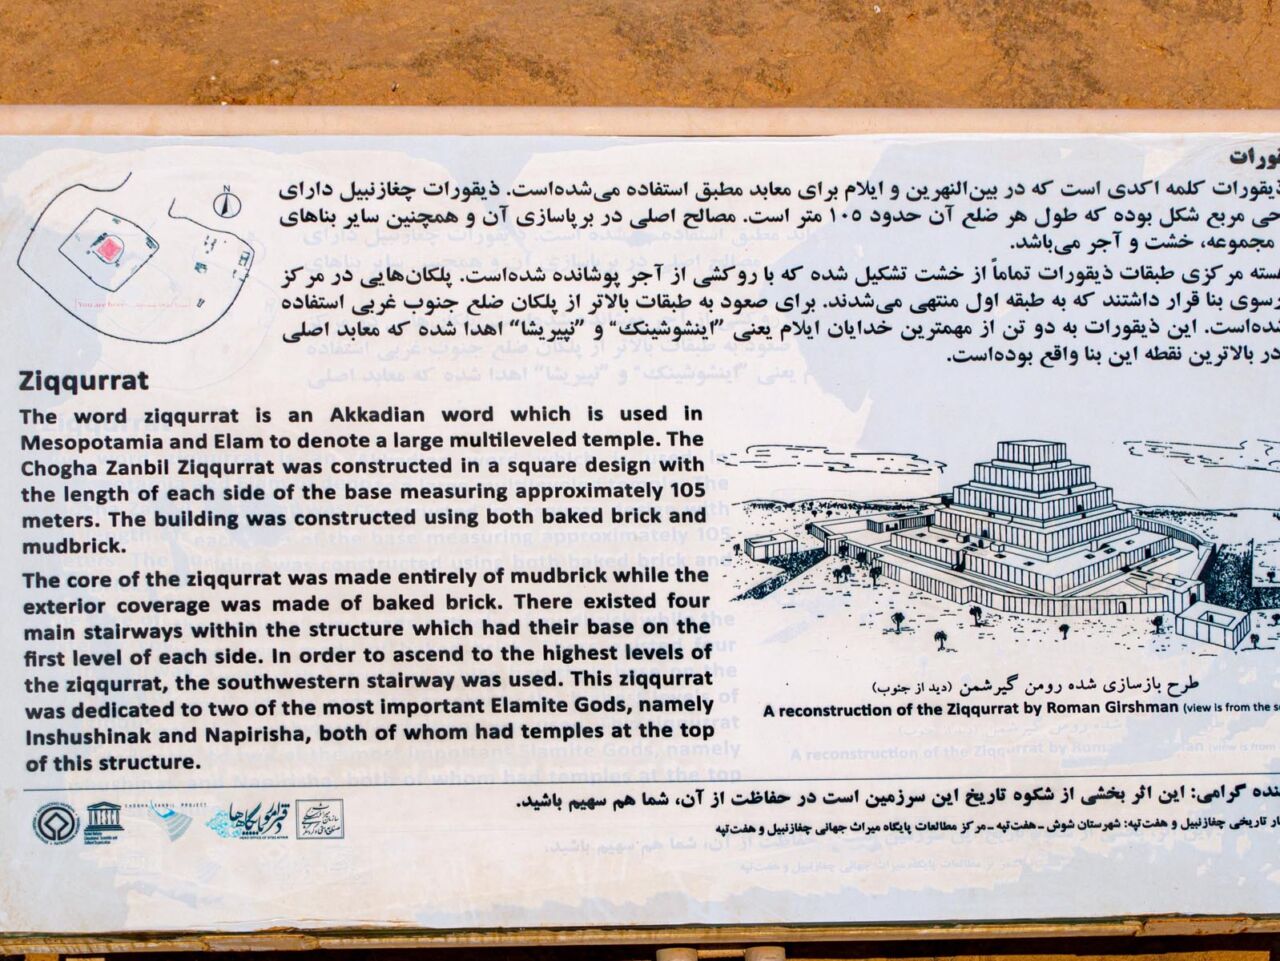 ذیقورات کلمه اکدی است که در بین‌النهرین و ایلام برای معابد مطبق استفاده می‌شده‌است. ذیقورات چغازنبیل دارای
مربع شکل بوده که طول هر ضلع آن حدود ۱۰۵ متر است. مصالح اصلی در برپاسازی آن و همچنین سایر بناهای
مجموعه، خشت و آجر می‌باشد.
مرکزی طبقات ذیقورات تماماً از خشت تشکیل شده که با روکشی از آجر پوشانده شده‌است. پلکان‌هایی در مرکز
بنا قرار داشتند که به طبقه اول منتهی می‌شدند. برای صعود به طبقات بالاتر از پلکان ضلع جنوب غربی استفاده
این ذیقورات به دو تن از مهمترین خدایان ایلام یعنی "اینشوشینک" و "نپیریشا" اهدا شده که معابد اصلی
در بالاترین نقطه این بنا واقع بوده‌است.
N
You are here
Ziqqurrat
The word ziqqurrat is an Akkadian word which is used in
Mesopotamia and Elam to denote a large multileveled temple. The
Chogha Zanbil Ziqqurrat was constructed in a square design with
the length of each side of the base measuring approximately 105
meters. The building was constructed using both baked brick and
mudbrick.
The core of the ziqqurrat was made entirely of mudbrick while the
exterior coverage was made of baked brick. There existed four
main stairways within the structure which had their base on the
first level of each side. In order to ascend to the highest levels of
the ziqqurrat, the southwestern stairway was used. This ziqqurrat
was dedicated to two of the most important Elamite Gods, namely
Inshushinak and Napirisha, both of whom had temples at the top
of this structure.
طرح بازسازی شده رومن گیرشمن (دید از جنوب)
A reconstruction of the Ziqqurrat by Roman Girshman (view is from the
گرامی: این اثر بخشی از شکوه تاریخ این سرزمین است در حفاظت از آن، شما هم سهیم باشید.
تاریخی چغازنبیل و هفت‌تپه: شهرستان شوش ـ هفت‌تپه ـ مرکز مطالعات پایگاه میراث جهانی چغازنبیل و هفت‌تپه
CHOGHA ZANBIL PROJECT